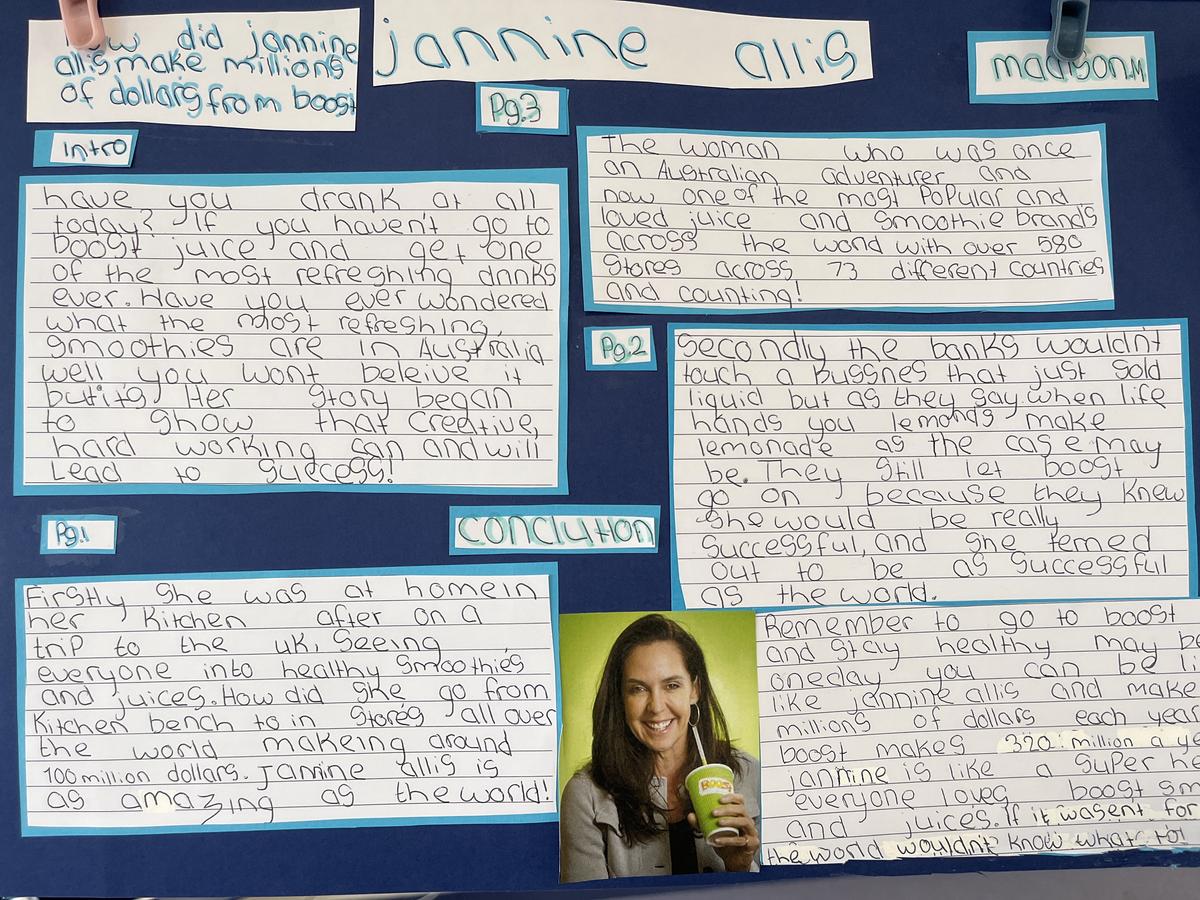 How did jannine
allis make millions
of dollars from boost
jannine allis
madison.M
Intro
have you drank at all
today? If you haven't go to
boost juice and get one
of the most refreshing drinks
ever. Have you ever wondered
what the most refreshing,
smoothies are in Australia
well you wont beleive it
but it's Her story began
to show that creative,
hard working can and will
Lead to success!
Pg.1
Firstly she was at home in
her Kitchen after on a
trip to the uk, Seeing
everyone into healthy smoothies
and juices. How did she go from
Kitchen bench to in stores all over
the world makeing around
100 million dollars. Jannine allis is
as amazing as the world!
Pg.2
Secondly the banks wouldn't
touch a bussnes that just sold
liquid but as they say. when life
hands you lemonds make
lemonade as the case may
be. They still let boost
go on because they knew
she would be really
successful, and she terned
out to be as successful
as the world.
Pg.3
The woman who was once
an Australian adventurer and
now one of the most Popular and
loved juice and smoothie brands
across the world with over 580
stores across 73 different countries
and counting!
conclution
Remember to go to boost
and stay healthy may be
oneday you can be li
like jannine allis and make
millions of dollars each year
boost makes 390 million a ye
jannine is like a super he
everyone loves boost sm
and juices. If it wasent for
the world wouldn't know what to
BOOST